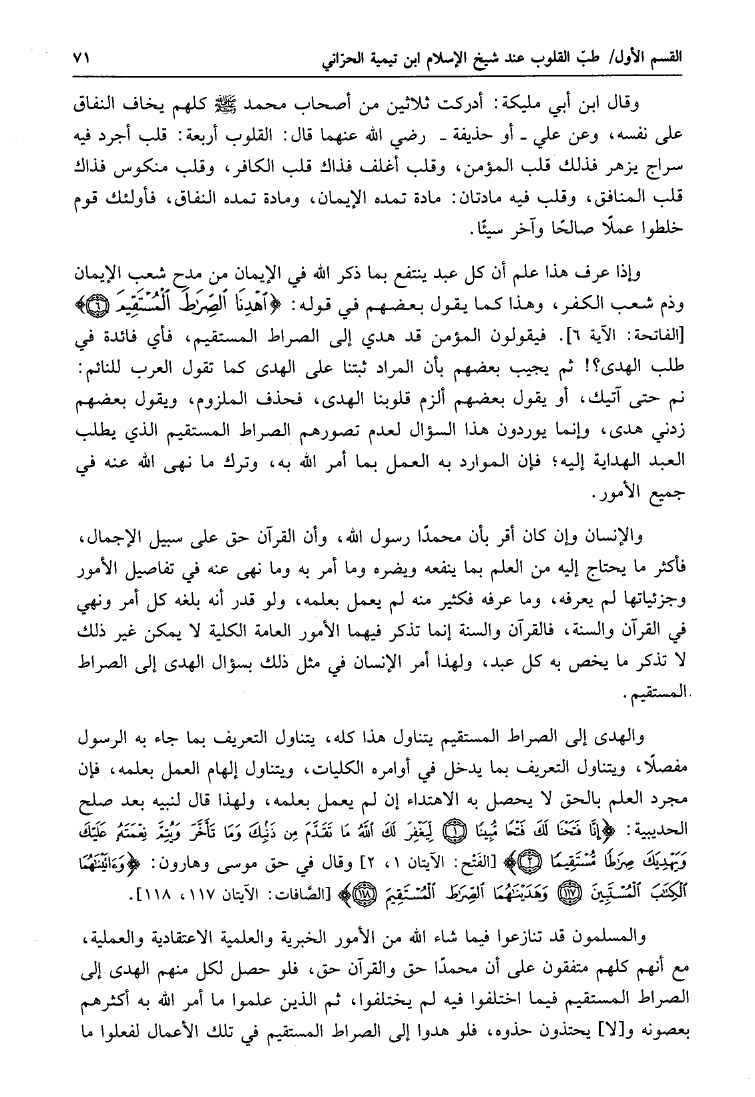 القسم الأول/ طبّ القلوب عند شيخ الإسلام ابن تيمية الحرّاني ٧١
وقال ابن أبي مليكة: أدركت ثلاثين من أصحاب محمد ﷺ كلهم يخاف النفاق
على نفسه، وعن علي ـ أو حذيفة ـ رضي الله عنهما قال: القلوب أربعة: قلب أجرد فيه
سراج يزهر فذلك قلب المؤمن، وقلب أغلف فذاك قلب الكافر، وقلب منكوس فذاك
قلب المنافق، وقلب فيه مادتان: مادة تمده الإيمان، ومادة تمده النفاق، فأولئك قوم
خلطوا عملًا صالحًا وآخر سيئًا.
وإذا عرف هذا علم أن كل عبد ينتفع بما ذكر الله في الإيمان من مدح شعب الإيمان
وذم شعب الكفر، وهذا كما يقول بعضهم في قوله: ﴿ٱهْدِنَا ٱلصِّرَٰطَ ٱلْمُسْتَقِيمَ ٦﴾
[الفاتحة: الآية ٦]. فيقولون المؤمن قد هدي إلى الصراط المستقيم، فأي فائدة في
طلب الهدى؟! ثم يجيب بعضهم بأن المراد ثبتنا على الهدى كما تقول العرب للنائم:
نم حتى آتيك، أو يقول بعضهم ألزم قلوبنا الهدى، فحذف الملزوم، ويقول بعضهم
زدني هدى، وإنما يوردون هذا السؤال لعدم تصورهم الصراط المستقيم الذي يطلب
العبد الهداية إليه؛ فإن الموارد به العمل بما أمر الله به، وترك ما نهى الله عنه في
جميع الأمور.
والإنسان وإن كان أقر بأن محمدًا رسول الله، وأن القرآن حق على سبيل الإجمال،
فأكثر ما يحتاج إليه من العلم بما ينفعه ويضره وما أمر به وما نهى عنه في تفاصيل الأمور
وجزئياتها لم يعرفه، وما عرفه فكثير منه لم يعمل بعلمه، ولو قدر أنه بلغه كل أمر ونهي
في القرآن والسنة، فالقرآن والسنة إنما تذكر فيهما الأمور العامة الكلية لا يمكن غير ذلك
لا تذكر ما يخص به كل عبد، ولهذا أمر الإنسان في مثل ذلك بسؤال الهدى إلى الصراط
المستقيم.
والهدى إلى الصراط المستقيم يتناول هذا كله، يتناول التعريف بما جاء به الرسول
مفصلًا، ويتناول التعريف بما يدخل في أوامره الكليات، ويتناول إلهام العمل بعلمه، فإن
مجرد العلم بالحق لا يحصل به الاهتداء إن لم يعمل بعلمه، ولهذا قال لنبيه بعد صلح
الحديبية: ﴿إِنَّا فَتَحْنَا لَكَ فَتْحًا مُّبِينًا ١ لِّيَغْفِرَ لَكَ ٱللَّهُ مَا تَقَدَّمَ مِن ذَنۢبِكَ وَمَا تَأَخَّرَ وَيُتِمَّ نِعْمَتَهُۥ عَلَيْكَ
وَيَهْدِيَكَ صِرَٰطًا مُّسْتَقِيمًا ٢﴾ [الفَتْح: الآيتان ١، ٢] وقال في حق موسى وهارون: ﴿وَءَاتَيْنَٰهُمَا
ٱلْكِتَٰبَ ٱلْمُسْتَبِينَ ١١٧ وَهَدَيْنَٰهُمَا ٱلصِّرَٰطَ ٱلْمُسْتَقِيمَ ١١٨﴾ [الصَّافات: الآيتان ١١٧، ١١٨].
والمسلمون قد تنازعوا فيما شاء الله من الأمور الخبرية والعلمية الاعتقادية والعملية،
مع أنهم كلهم متفقون على أن محمدًا حق والقرآن حق، فلو حصل لكل منهم الهدى إلى
الصراط المستقيم فيما اختلفوا فيه لم يختلفوا، ثم الذين علموا ما أمر الله به أكثرهم
يعصونه و[لا] يحتذون حذوه، فلو هدوا إلى الصراط المستقيم في تلك الأعمال لفعلوا ما